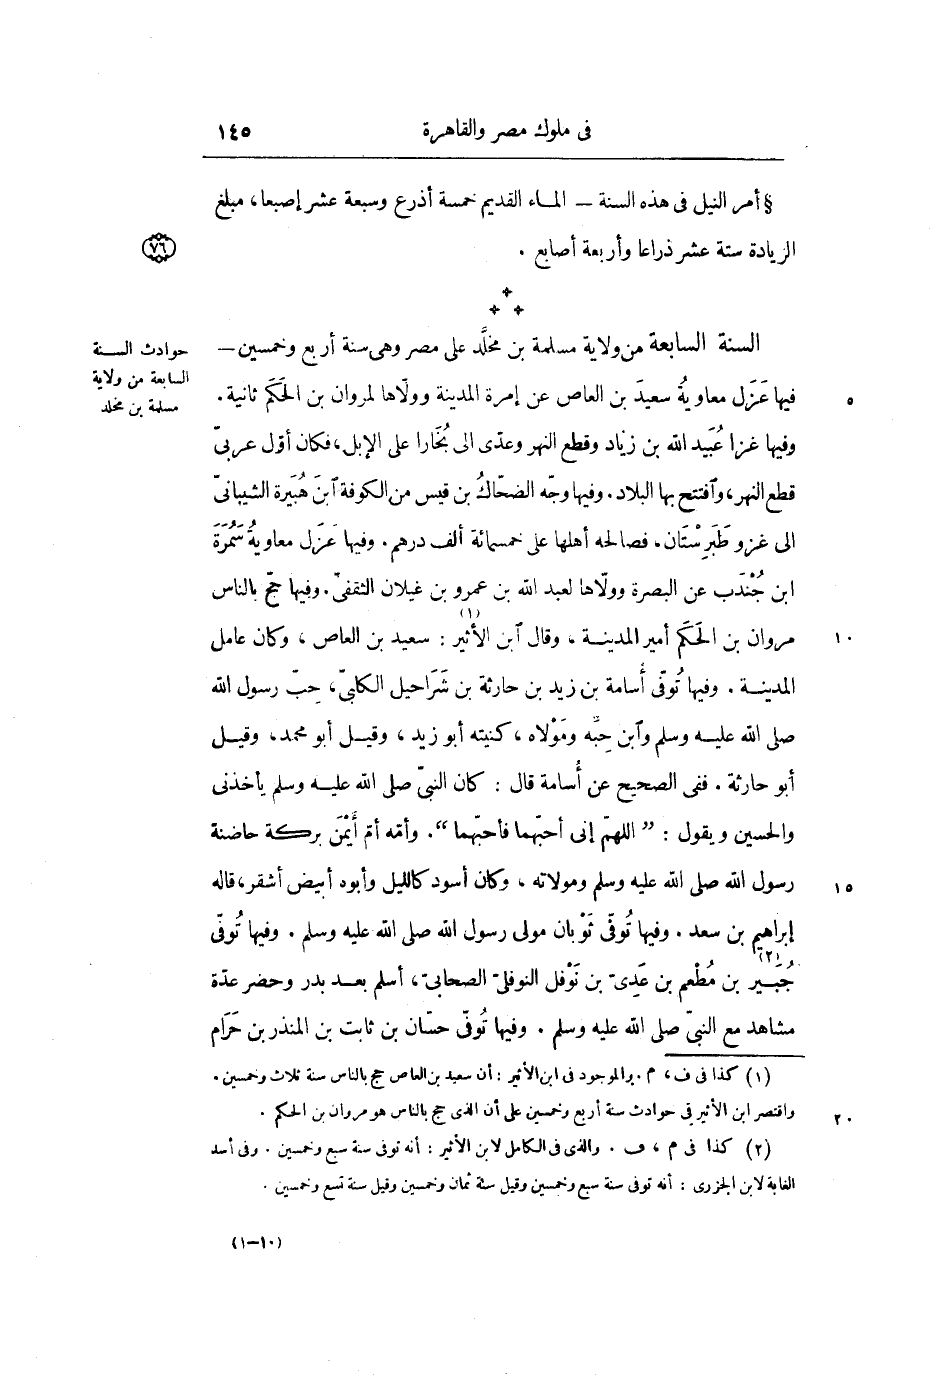 فى ملوك مصر والقاهرة ١٤٥
§ أمر النيل فى هذه السنة — المـاء القديم خمسة أذرع وسبعة عشر إصبعا، مبلغ
الزيادة ستة عشر ذراعا وأربعة أصابع .
٧٦
السنة السابعة من ولاية مسلمة بن مخلَّد على مصر وهى سنة أربع وخمسين —
حوادث السنة
السابعة من ولاية
مسلمة بن مخلد
فيها عَزَل معاويةُ سعيدَ بن العاص عن إمرة المدينة وولّاها لمروان بن الحَكَم ثانية .
٥
وفيها غزا عُبَيد الله بن زياد وقطع النهر وعدّى الى بُخَارا على الإبل، فكان أوّل عربىّ
قطع النهر، وٱفتتح بها البلاد. وفيها وجّه الضحّاكُ بن قيس من الكوفة ٱبنَ هُبَيرة الشيبانىّ
الى غزو طَبَرِسْتَان. فصالحه أهلها على خمسمائة ألف درهم. وفيها عَزَل معاويةُ سَمُرَةَ
ابن جُنْدَب عن البصرة وولّاها لعبد الله بن عمرو بن غيلان الثقفىّ. وفيها حجّ بالناس
مروان بن الحَكَم أمير المدينـة ، وقال ٱبن الأثير (١) : سعيد بن العاص ، وكان عامل
١٠
المدينـة . وفيها تُوفّى أُسامة بن زيد بن حارثة بن شَرَاحيل الكلبىّ، حِبّ رسول الله
صلى الله عليـه وسلم وٱبن حِبِّه ومَوْلاه ، كنيته أبو زيد ، وقيـل أبو محمد، وقيـل
أبو حارثة . ففى الصحيح عن أُسامة قال : كان النبىّ صلى الله عليـه وسلم يأخذنى
والحسين ويقول : ” اللهمّ إنى أحبّهما فأحبّهما “. وأمّه أمّ أَيْمَن بركة حاضنة
رسول الله صلى الله عليه وسلم ومولاته ، وكان أسود كالليل وأبوه أبيض أشقر، قاله
١٥
إبراهيم بن سعد . وفيها تُوفّى ثَوْبان مولى رسول الله صلى الله عليه وسلم . وفيها تُوفّى
جُبَـير (٢) بن مُطْعِم بن عَدِىّ بن نَوْفل النوفلىّ الصحابىّ، أسلم بعـد بدر وحضر عدّة
مشاهد مع النبىّ صلى الله عليه وسلم . وفيها تُوفّى حسّان بن ثابت بن المنذر بن حَرَام
(١) كذا فى ف، م . والموجود فى ابن الأثير : أن سعيد بن العاص حج بالناس سنة ثلاث وخمسين .
واقتصر ابن الأثير فى حوادث سنة أربع وخمسين على أن الذى حج بالناس هو مروان بن الحكم .
٢٠
(٢) كذا فى م ، ف . والذى فى الكامل لابن الأثير : أنه توفى سنة سبع وخمسين . وفى أسد
الغابة لابن الجزرى : أنه توفى سنة سبع وخمسين وقيل سنة ثمان وخمسين وقيل سنة تسع وخمسين .
(١-١٠)